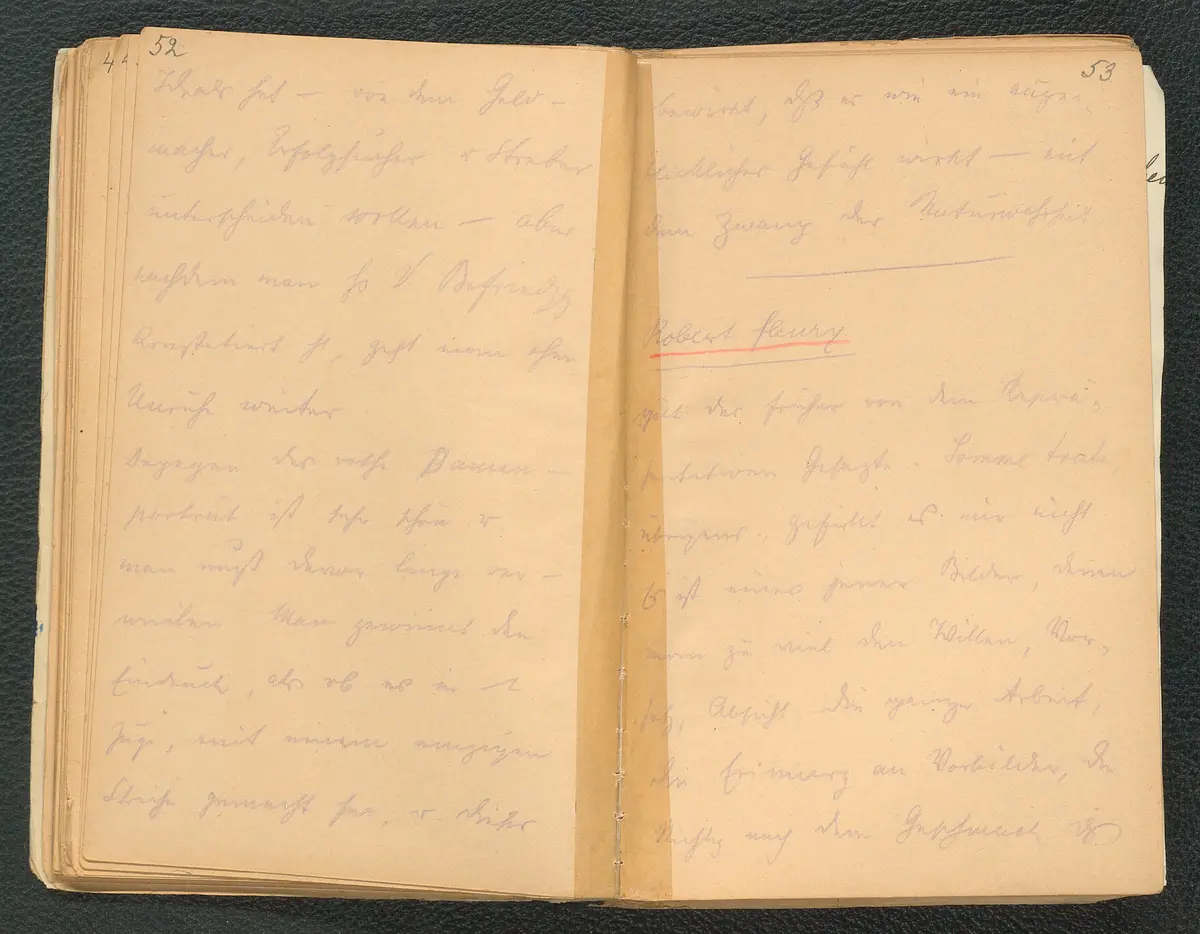 52
Ideals hat — von dem Geld-
macher, Erfolgsucher u Streber
unterscheiden wollen — aber
nachdem man so Befriedgg
konstatiert ht, geht man ohne
Unruhe weiter
Dagegen das rothe Damen-
portrait ist sehr schön u
man muß davor lange ver-
weilen Man gewinnt den
Eindruck, als ob es in 1
Zuge, mit einem einzigen
Striche gemacht sei, u dieses
53
bewirkt, dß es wie ein augen-
blickliches Gefühl wirkt — mit
dem Zwang der Naturwahrheit
Robert Fleury
gilt das früher von dem Reprä-
sentativen Gesagte. Somme toute
übrigens, gefällt es mir nicht
Es ist eines jener Bilder, denen
man zu viel den Willen, Vor-
satz, Absicht, die ganze Arbeit,
die Erinnerg an Vorbilder, die
nach dem Geschmack ds